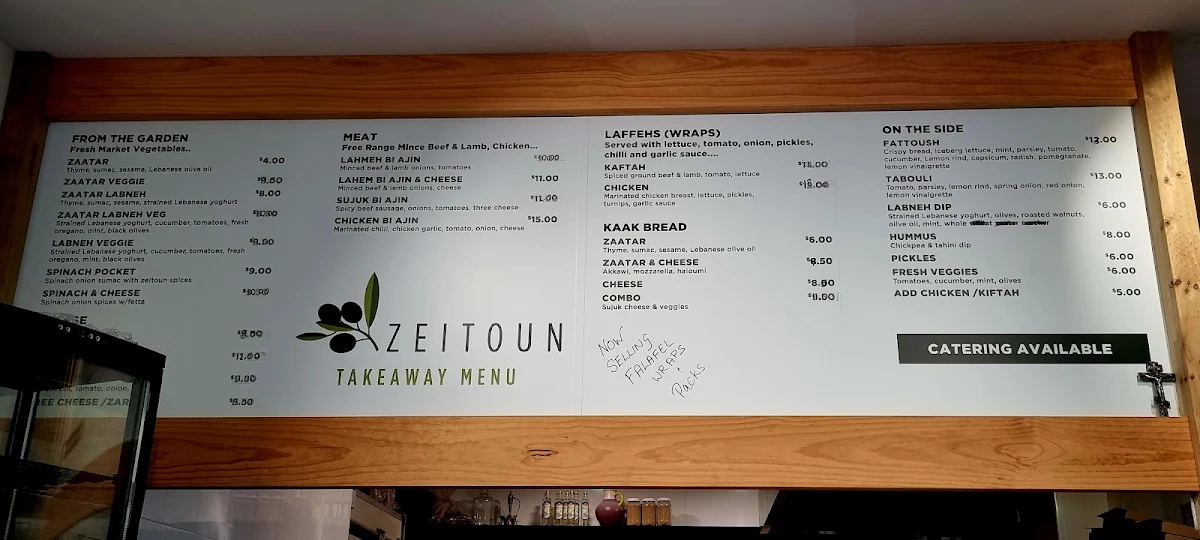 FROM THE GARDEN
Fresh Market Vegetables..
ZAATAR $4.00
Thyme, sumac, sesame, Lebanese olive oil
ZAATAR VEGGIE
ZAATAR LABNEH $8.00
Thyme, sumac, sesame, strained Lebanese yoghurt
ZAATAR LABNEH VEG
Strained Lebanese yoghurt, cucumber, tomatoes, fresh
oregano, mint, black olives
LABNEH VEGGIE
Strained Lebanese yoghurt, cucumber, tomatoes, fresh
oregano, mint, black olives
SPINACH POCKET $9.00
Spinach onion sumac with zeitoun spices
SPINACH & CHEESE
Spinach onion spices w/fetta
SE
tomato, onion,
REE CHEESE /ZAR
MEAT
Free Range Mince Beef & Lamb, Chicken...
LAHMEH BI AJIN
Minced beef & lamb onions, tomatoes
LAHEM BI AJIN & CHEESE $11.00
Minced beef & lamb onions, cheese
SUJUK BI AJIN
Spicy beef sausage, onions, tomatoes, three cheese
CHICKEN BI AJIN $15.00
Marinated chilli, chicken garlic, tomato, onion, cheese
ZEITOUN
TAKEAWAY MENU
LAFFEHS (WRAPS)
Served with lettuce, tomato, onion, pickles,
chilli and garlic sauce....
KAFTAH
Spiced ground beef & lamb, tomato, lettuce
CHICKEN
Marinated chicken breast, lettuce, pickles,
turnips, garlic sauce
KAAK BREAD
ZAATAR $6.00
Thyme, sumac, sesame, Lebanese olive oil
ZAATAR & CHEESE
Akkawi, mozzarella, haloumi
CHEESE
COMBO
Sujuk cheese & veggies
NOW
SELLING
FALAFEL
WRAPS
+
Packs
ON THE SIDE
FATTOUSH
Crispy bread, iceberg lettuce, mint, parsley, tomato,
cucumber, Lemon rind, capsicum, radish, pomegranate,
lemon vinaigrette
TABOULI $13.00
Tomato, parsley, lemon rind, spring onion, red onion,
lemon vinaigrette
LABNEH DIP $6.00
Strained Lebanese yoghurt, olives, roasted walnuts,
olive oil, mint, whole
HUMMUS $8.00
Chickpea & tahini dip
PICKLES $6.00
FRESH VEGGIES $6.00
Tomatoes, cucumber, mint, olives
ADD CHICKEN /KIFTAH $5.00
CATERING AVAILABLE